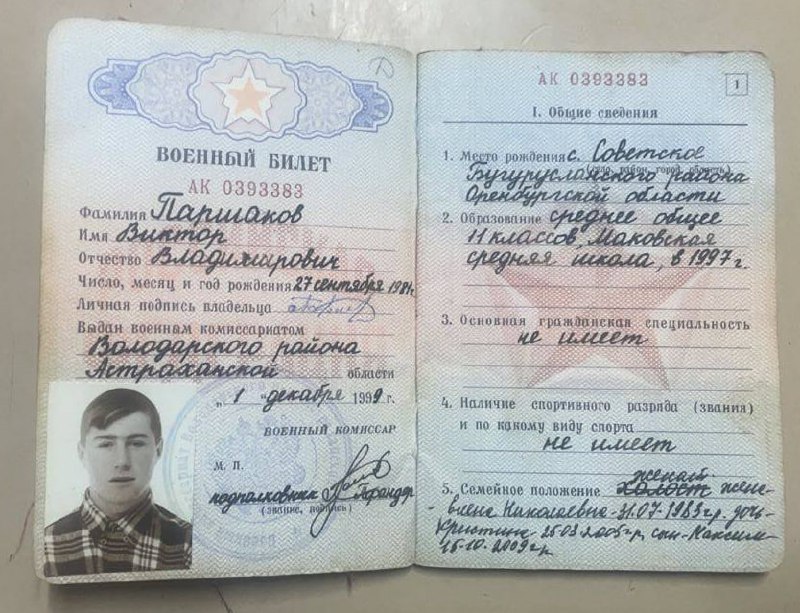 ВОЕННЫЙ БИЛЕТ
АК 0393383
Фамилия Паршаков
Имя Виктор
Отчество Владимирович
Число, месяц и год рождения 27 сентября
Личная подпись владельца
Выдан военным комиссариатом
Володарского района
Астраханской области
„ 1 " декабря 1999 г.
ВОЕННЫЙ КОМИССАР
М. П.
подполковник
(звание, подпись)
АК 0393383
1
I. Общие сведения
1. Место рождения с. Советское
Бугурусланского района
Оренбургской области
2. Образование среднее общее
11 классов, Маковская
средняя школа, в 1997 г.
3. Основная гражданская специальность
не имеет
4. Наличие спортивного разряда (звания)
и по какому виду спорта
не имеет
женат
5. Семейное положение холост жена
Николаевна - 31.07.1983 г.р. дочь
Кристина - 25.03.2005 г.р, сын - Максим
15.10.2009 г.р.